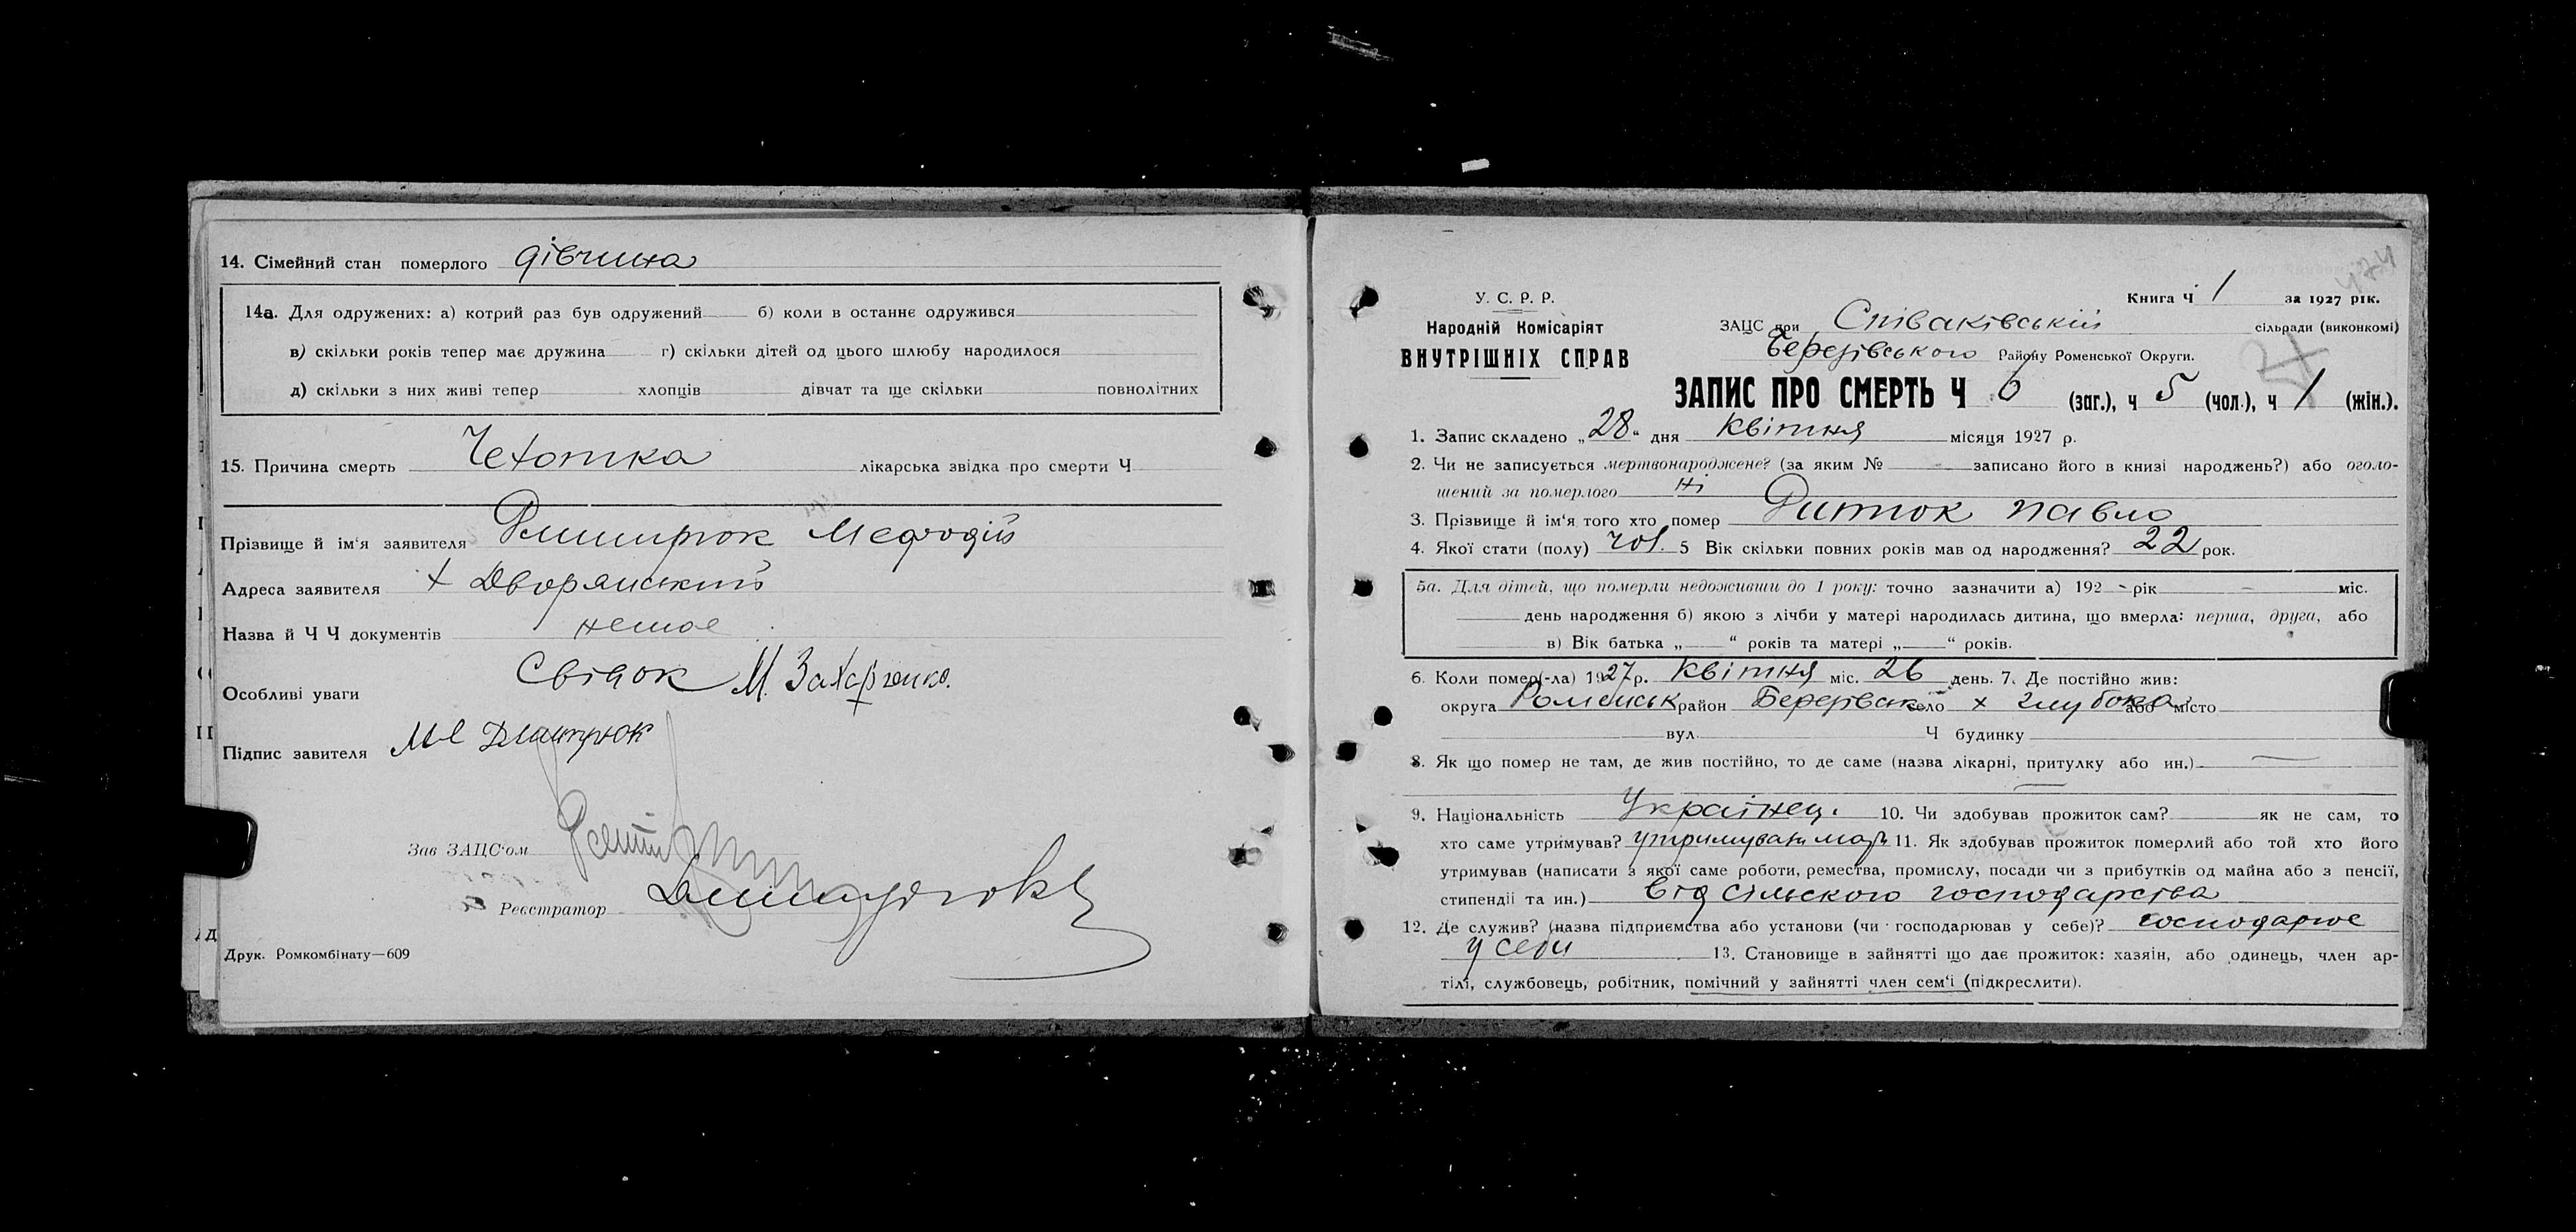 14. Сімейний стан померлого дівчина
14а. Для одружених: а) котрий раз був одружений б) коли в останнє одружився
в) скільки років тепер має дружина г) скільки дітей од цього шлюбу народилося
д) скільки з них живі тепер хлопців дівчат та ще скільки повнолітних
15. Причина смерть Чехотка лікарська звідка про смерти Ч
Прізвище й ім'я заявителя Дмитрюк Мефодій
Адреса заявителя х Дворянський
Назва й Ч Ч документів немає
Особливі уваги Свідок М. Захарченко.
Підпис завителя Ме Дмитрюк
Зав ЗАЦС'ом
Реєстратор
Друк. Ромкомбінату—609
474
У. С. Р. Р.
Народній Комісаріят
ВНУТРІШНІХ СПРАВ
Книга Ч 1 за 1927 рік.
ЗАЦС при Співаківській сільради (виконкомі)
Березівського Району Роменської Округи.
ЗАПИС ПРО СМЕРТЬ Ч 6 (заг.), ч 5 (чол.), ч 1 (жін.).
1. Запис складено „28" дня квітня місяця 1927 р.
2. Чи не записується мертвонароджене? (за яким № записано його в книзі народжень?) або оголо-
шений за померлого ні
3. Прізвище й ім'я того хто помер Дитюк Павло
4. Якої стати (полу) чол. 5 Вік скільки повних років мав од народження? 22 рок.
5а. Для дітей, що померли недоживши до 1 року: точно зазначити а) 192 - рік - міс.
день народження б) якою з лічби у матері народилась дитина, що вмерла: перша, друга, або
в) Вік батька „ " років та матері „ " років.
6. Коли помер(-ла) 1927 р. квітня міс. 26 день. 7. Де постійно жив:
округа Роменськ район Березівськ село х Глубока або місто
вул. Ч будинку
8. Як що помер не там, де жив постійно, то де саме (назва лікарні, притулку або ин.) —
9. Національність Українец. 10. Чи здобував прожиток сам? як не сам, то
хто саме утримував? утримувати 11. Як здобував прожиток померлий або той хто його
утримував (написати з якої саме роботи, ремества, промислу, посади чи з прибутків од майна або з пенсії,
стипендії та ин.) від сільского господарства
12. Де служив? (назва підприємства або установи (чи господарював у себе)? господарює
у себи 13. Становище в зайнятті що дає прожиток: хазяін, або одинець, член ар-
тілі, службовець, робітник, помічний у зайнятті член сем'ї (підкреслити).